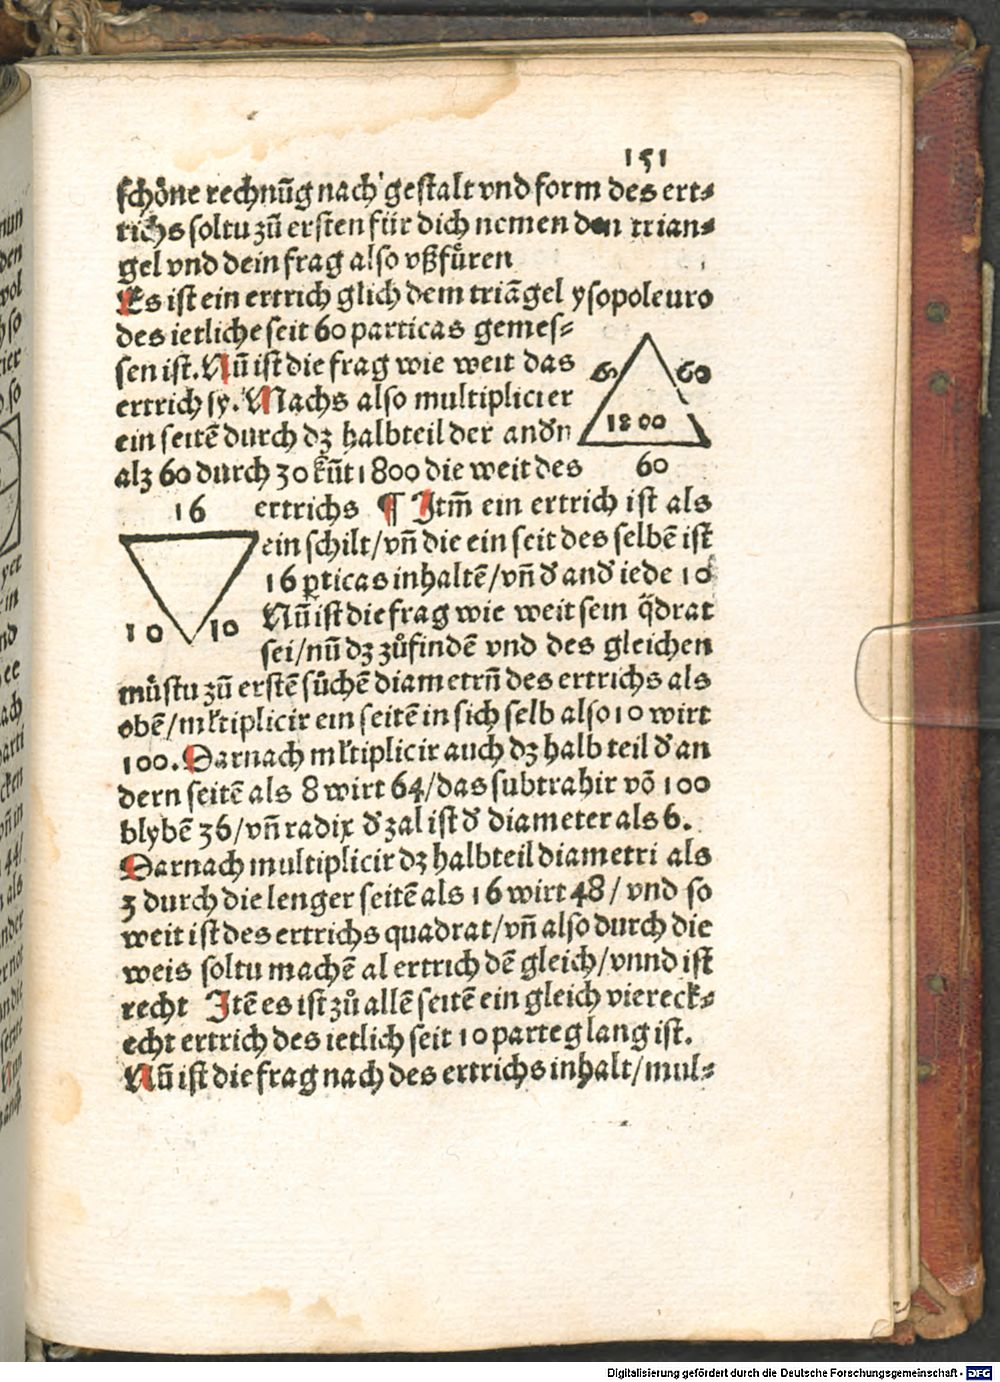 151
schöne rechnūg nach gestalt vnd form des ert⸗
richs soltu zū ersten für dich nemen den trian⸗
gel vnd dein frag also vßfüren
Es ist ein ertrich glich dem triāgel ysopoleuro
des ietliche seit 60 particas gemes⸗
sen ist. Nū ist die frag wie weit das
ertrich sy. Machs also multiplicier
ein seitē durch dz halbteil der andn
alz 60 durch 30 kūt 1800 die weit des
60 60
1800
60
16
10 10
ertrichs ¶ Itm̄ ein ertrich ist als
ein schilt/vn̄ die ein seit des selbē ist
16 ꝑticas inhaltē/vn̄ d̕ and̕ iede 10
Nū ist die frag wie weit sein q̄drat
sei/nū dz zůfindē vnd des gleichen
můstu zū erstē sůchē diametrn̄ des ertrichs als
obē/ml̕tiplicir ein seitē in sich selb also 10 wirt
100. Darnach ml̕tiplicir auch dz halb teil d̕ an
dern seitē als 8 wirt 64/das subtrahir vō 100
blybē 36/vn̄ radix d̕ zal ist d̕ diameter als 6.
Darnach multiplicir dz halbteil diametri als
3 durch die lenger seitē als 16 wirt 48/ vnd so
weit ist des ertrichs quadrat/vn̄ also durch die
weis soltu machē al ertrich dē gleich/vnnd ist
recht Itē es ist zů allē seitē ein gleich viereck⸗
echt ertrich des ietlich seit 10 parteg lang ist.
Nū ist die frag nach des ertrichs inhalt/mul⸗
Digitalisierung gefördert durch die Deutsche Forschungsgemeinschaft - DFG